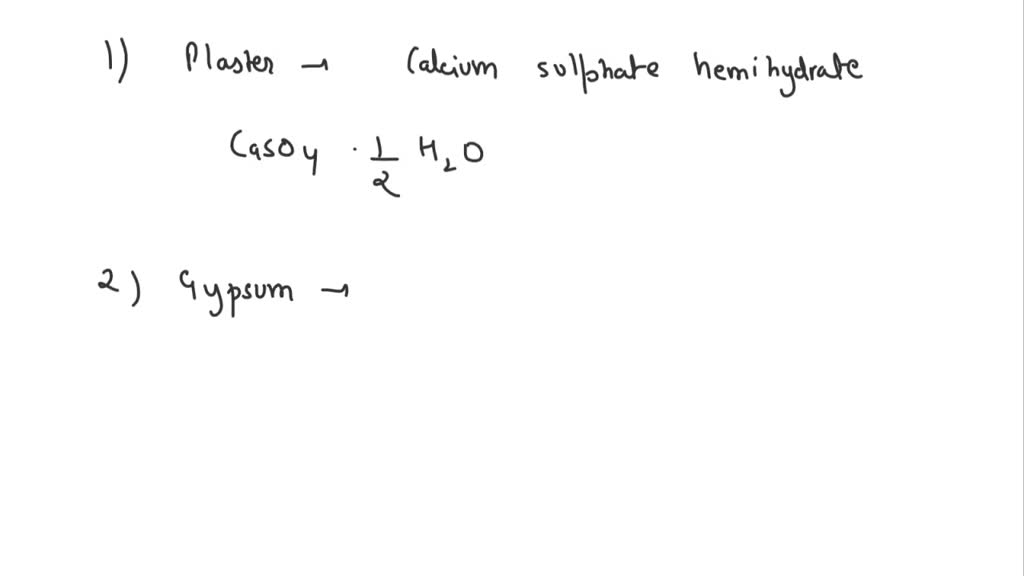 1) Plaster → Calcium sulphate hemihydrate
CaSO4 · 1/2 H2O
2) Gypsum →